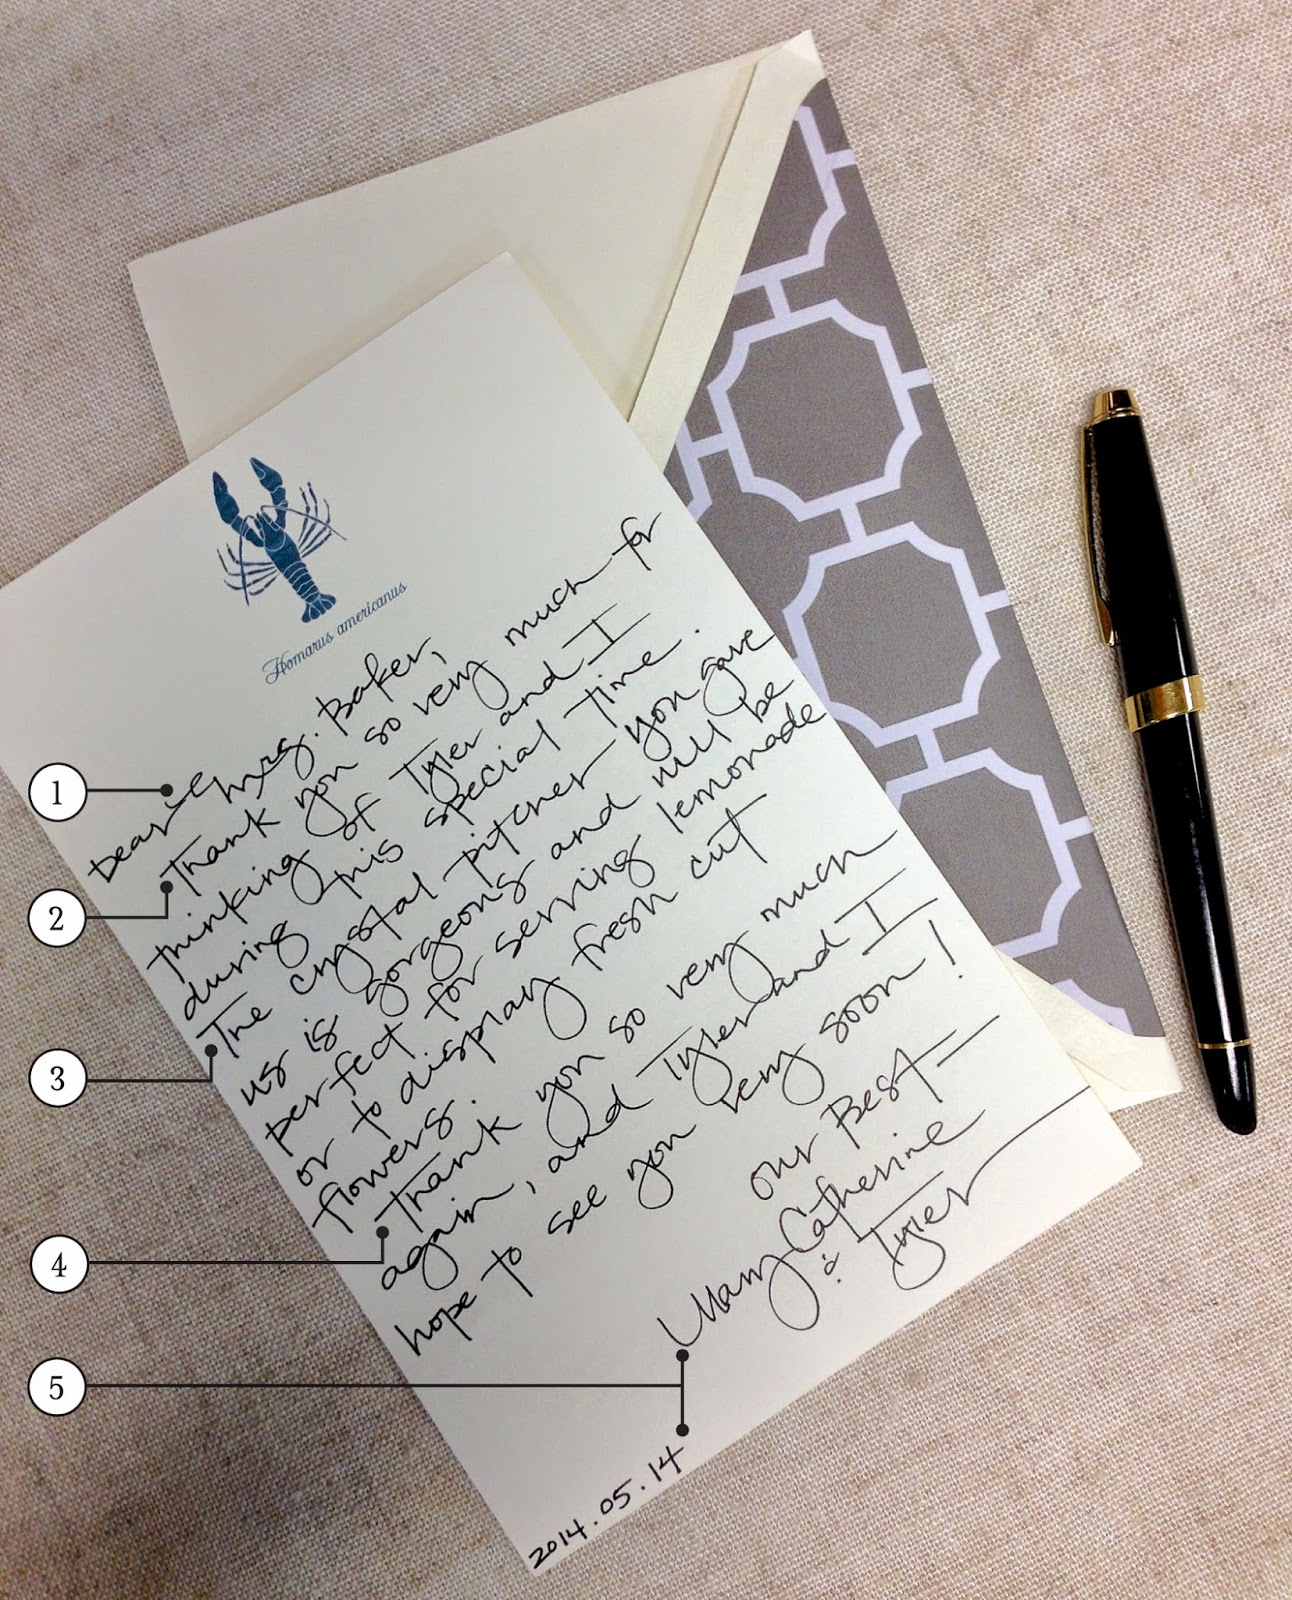 Homarus americanus
Dear Mrs. Baker,
Thank you so very much for
thinking of Tyler and I
during this special time.
The crystal pitcher you gave
us is gorgeous and will be
perfect for serving lemonade
or to display fresh cut
flowers.
Thank you so very much
again, and Tyler and I
hope to see you very soon!
our Best—
Mary Catherine
& Tyler
2014.05.14
1
2
3
4
5